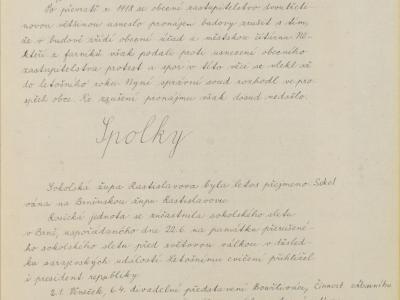 Po převratě r. 1918 se obecní zastupitelstvo dvoutřeti-
novou většinou usneslo pronájem budovy zrušit s tím,
že v budově zřídí obecní úřad a městskou čítárnu. Ně-
kteří z farníků však podali proti usnesení obecního
zastupitelstva protest a spor v této věci se vlekl až
do letošního roku. Nyní správní soud rozhodl ve pro-
spěch obce. Ke zrušení pronájmu však dosud nedošlo.
Spolky
Sokolská župa Rastislavova byla letos přejmeno-
vána na Brněnskou župu Rastislavovu.
Rosická jednota se zúčastnila sokolského sletu
v Brně, uspořádaného dne 22.6. na památku přerušené-
ho sokolského sletu před světovou válkou v důsled-
ku sarajevských událostí. Letošnímu cvičení přihlížel
i president republiky.
2.1. Věneček, 6.4. divadelní představení